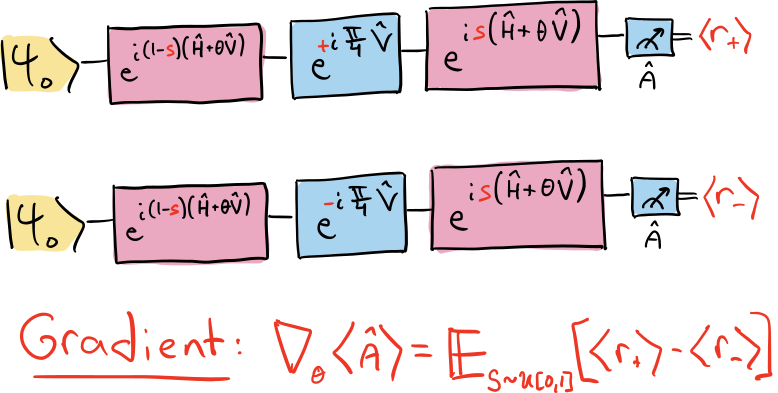 |ψ₀⟩ e^{i(1-s)(Ĥ+θV̂)} e^{+i π/4 V̂} e^{is(Ĥ+θV̂)} ⟨r₊⟩
Â
|ψ₀⟩ e^{i(1-s)(Ĥ+θV̂)} e^{-i π/4 V̂} e^{is(Ĥ+θV̂)} ⟨r₋⟩
Â
Gradient: ∇_θ⟨Â⟩ = 𝔼_{s~U[0,1]}[⟨r₊⟩-⟨r₋⟩]